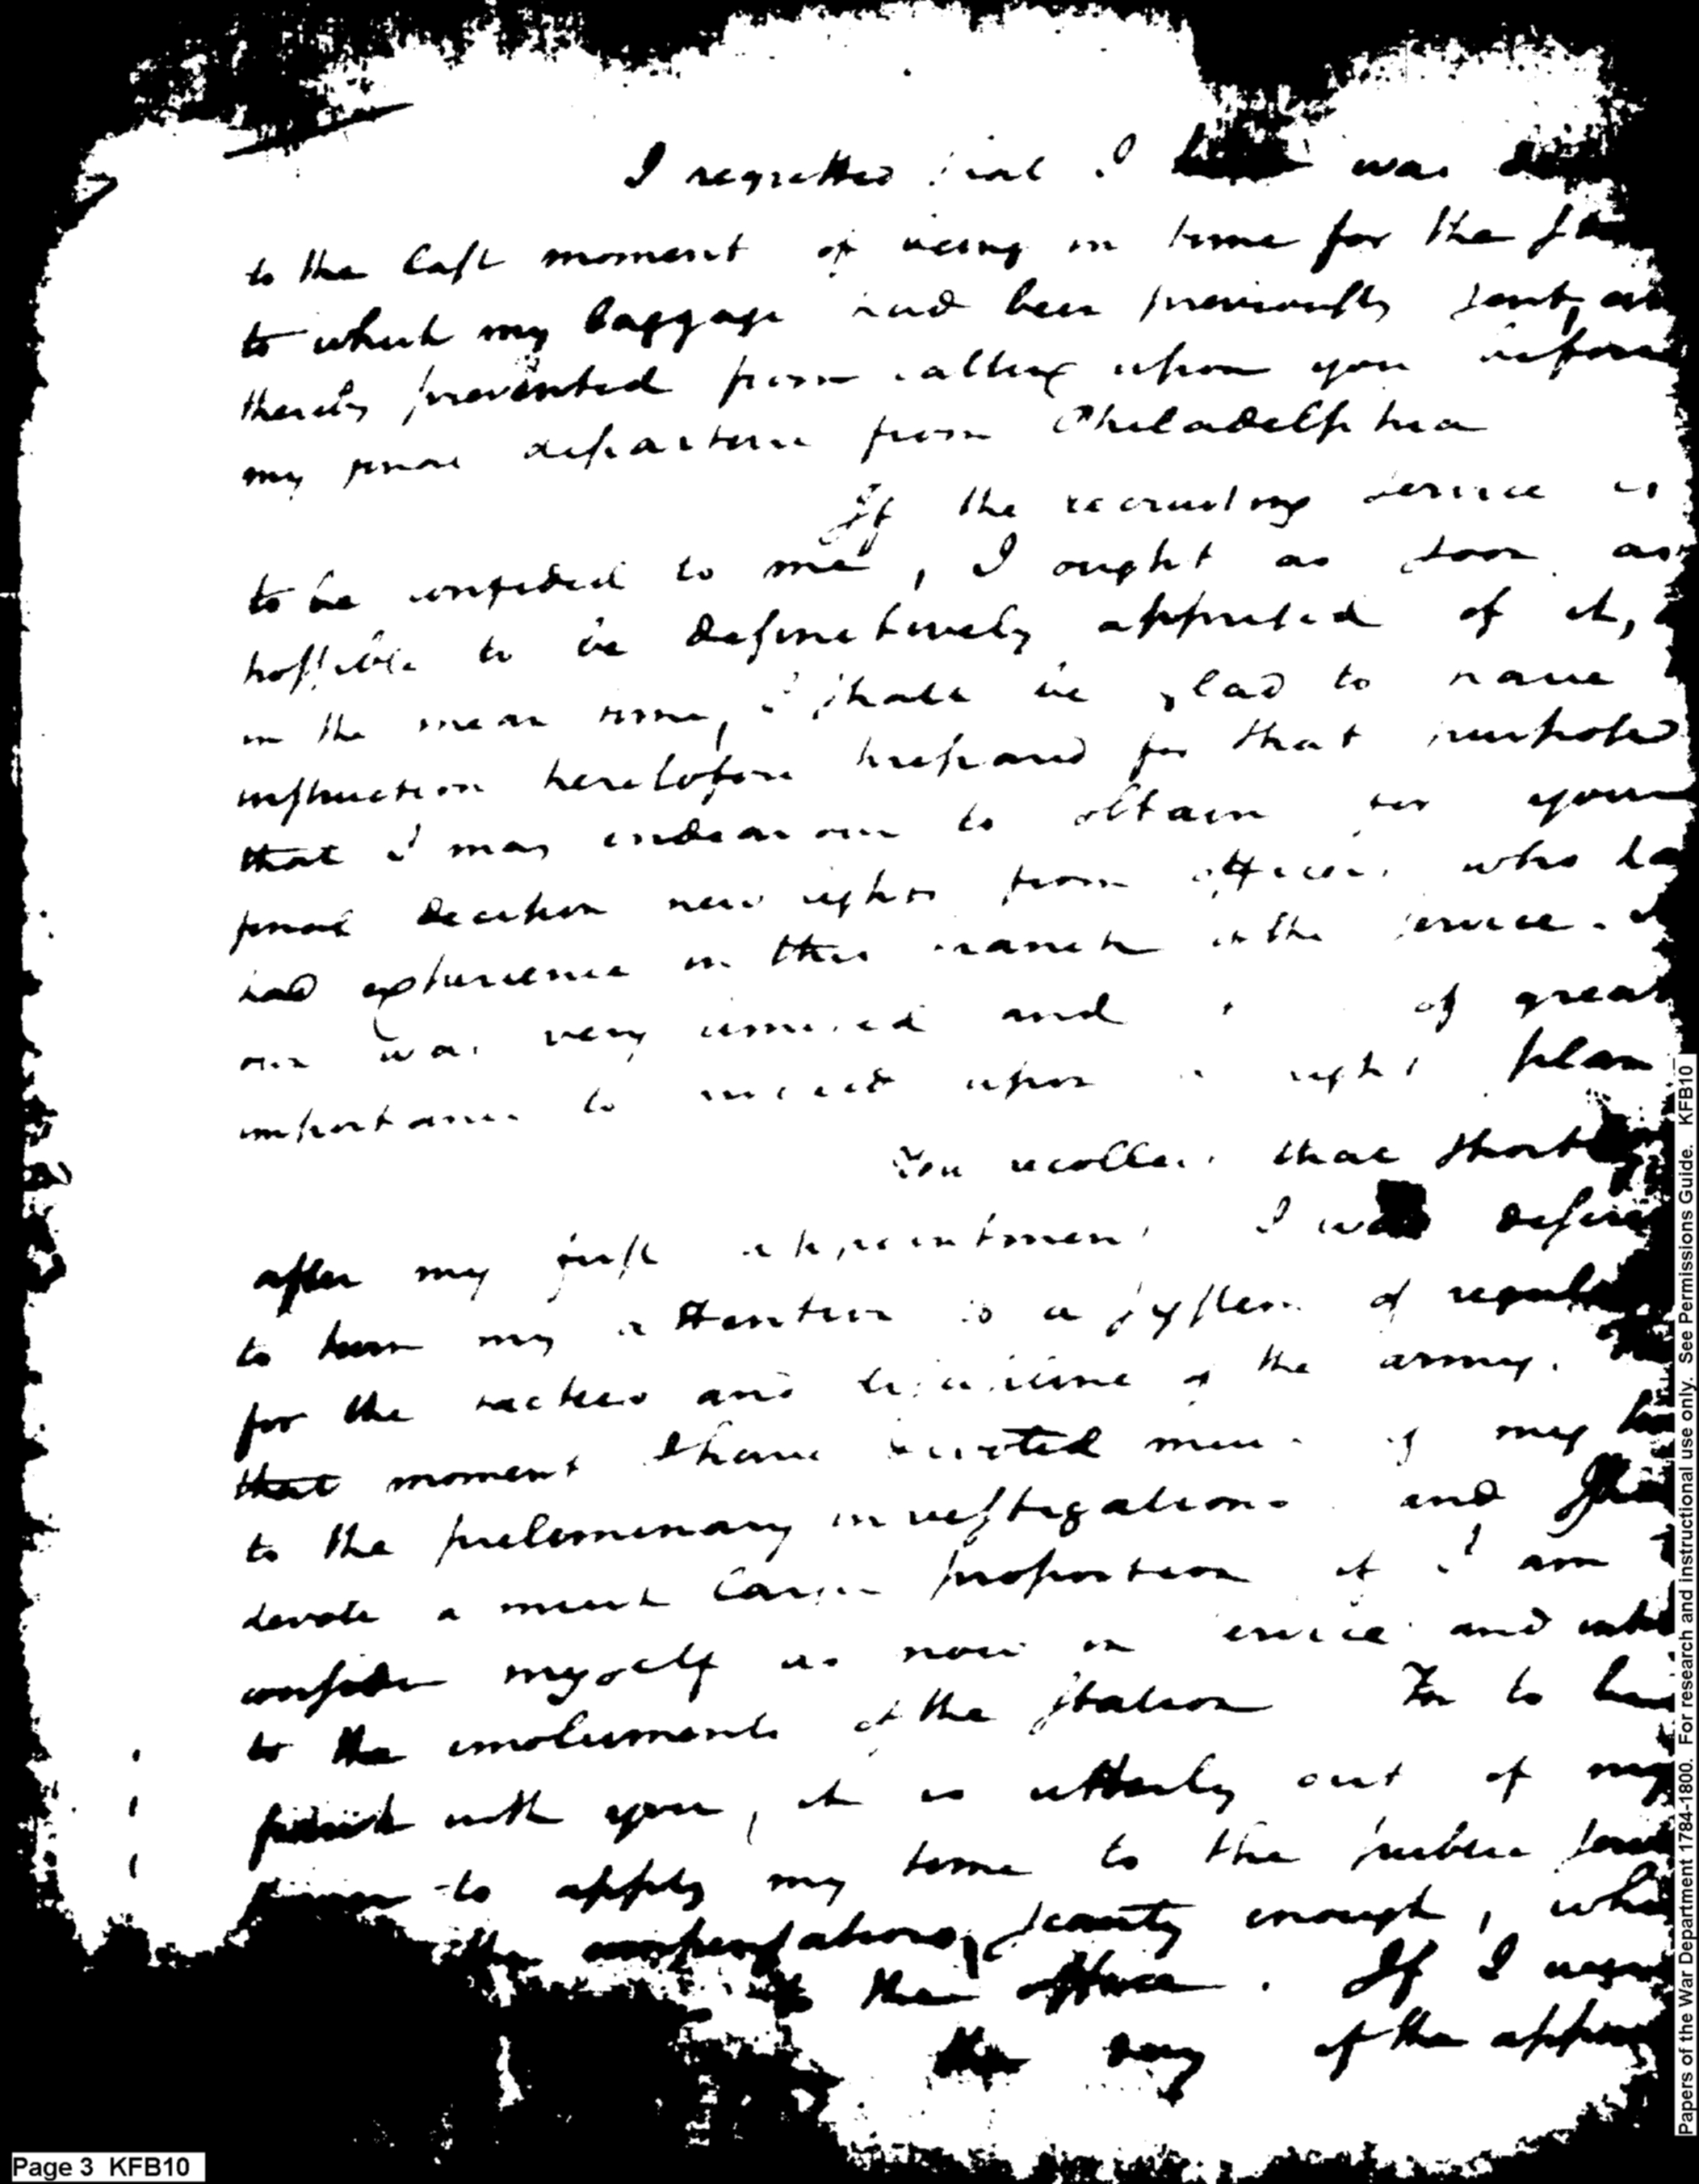 I regretted that I was
to the last moment of being in time for the
to which my baggage had been previously sent, and
thereby prevented from calling upon you before
my final departure from Philadelphia
If the recruiting service is
to be confided to me, I ought as soon as
possible to be definitively apprised of it,
in the mean time, I shall be glad to have
instruction heretofore prepared for that purpose
that I may endeavour to obtain for your
final decision new lights from officers who
had experience in this branch of the service.
our was very and of great
importance to proceed upon a right plan
You recollect that shortly
after my first appointment I was
to turn my attention to a system of
for the tactics and discipline of the army.
that moment I have devoted much of my
to the preliminary investigations and
devote a much larger proportion if I am
consider myself as now in service and
to the emoluments of the station For to be
with you, it is utterly out of my
power to apply my time to the public
the compensations, scanty enough,
the office. If I
the day of the
Papers of the War Department 1784-1800. For research and Instructional use only. See Permissions Guide. KFB10
Page 3 KFB10